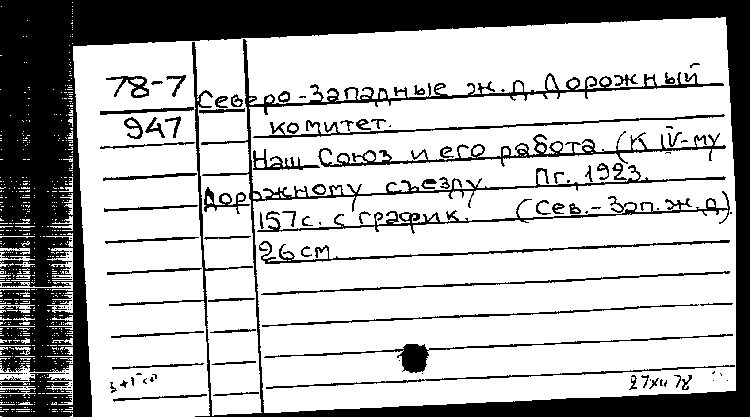 78-7
947
Северо-Западные ж.д. Дорожный
комитет.
Наш Союз и его работа. (К IV-му
Дорожному съезду. Пг., 1923.
157с. с график. (Сев.-Зап.ж.д)
26 см.
27 XII 78